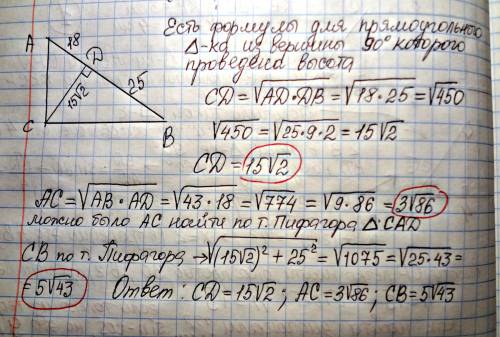 A
18
D
25
15√2
C
B
Есть формулы для прямоугольного
Δ-ка из вершины 90° которого
проведена высота
CD = √AD·DB = √18·25 = √450
√450 = √25·9·2 = 15√2
CD = 15√2
AC = √AB·AD = √43·18 = √774 = √9·86 = 3√86
можно было AC найти по т. Пифагора ΔCAD
CB по т. Пифагора → √(15√2)² + 25² = √1075 = √25·43 =
= 5√43 Ответ: CD = 15√2; AC = 3√86; CB = 5√43